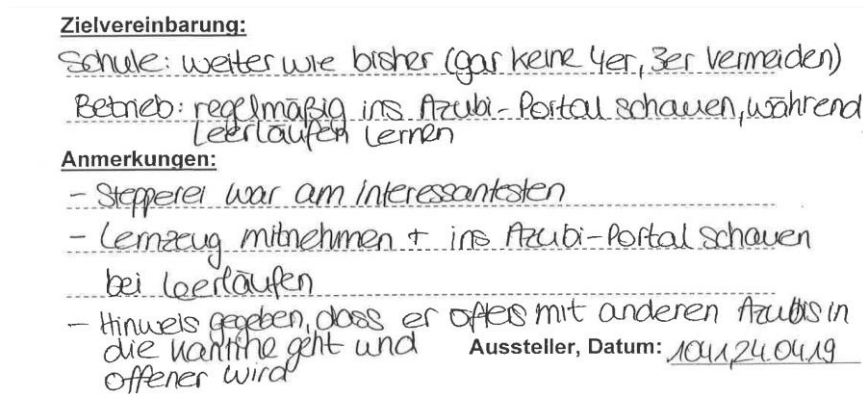 Zielvereinbarung:
Schule: weiter wie bisher (gar keine 4er, 3er vermeiden)
Betrieb: regelmäßig ins Azubi-Portal schauen, während
Leerläufen lernen
Anmerkungen:
- Stepperei war am interessantesten
- Lernzeug mitnehmen + ins Azubi-Portal schauen
bei Leerläufen
- Hinweis gegeben, dass er öfters mit anderen Azubis in
die Kantine geht und
offener wird
Aussteller, Datum: 24.04.19